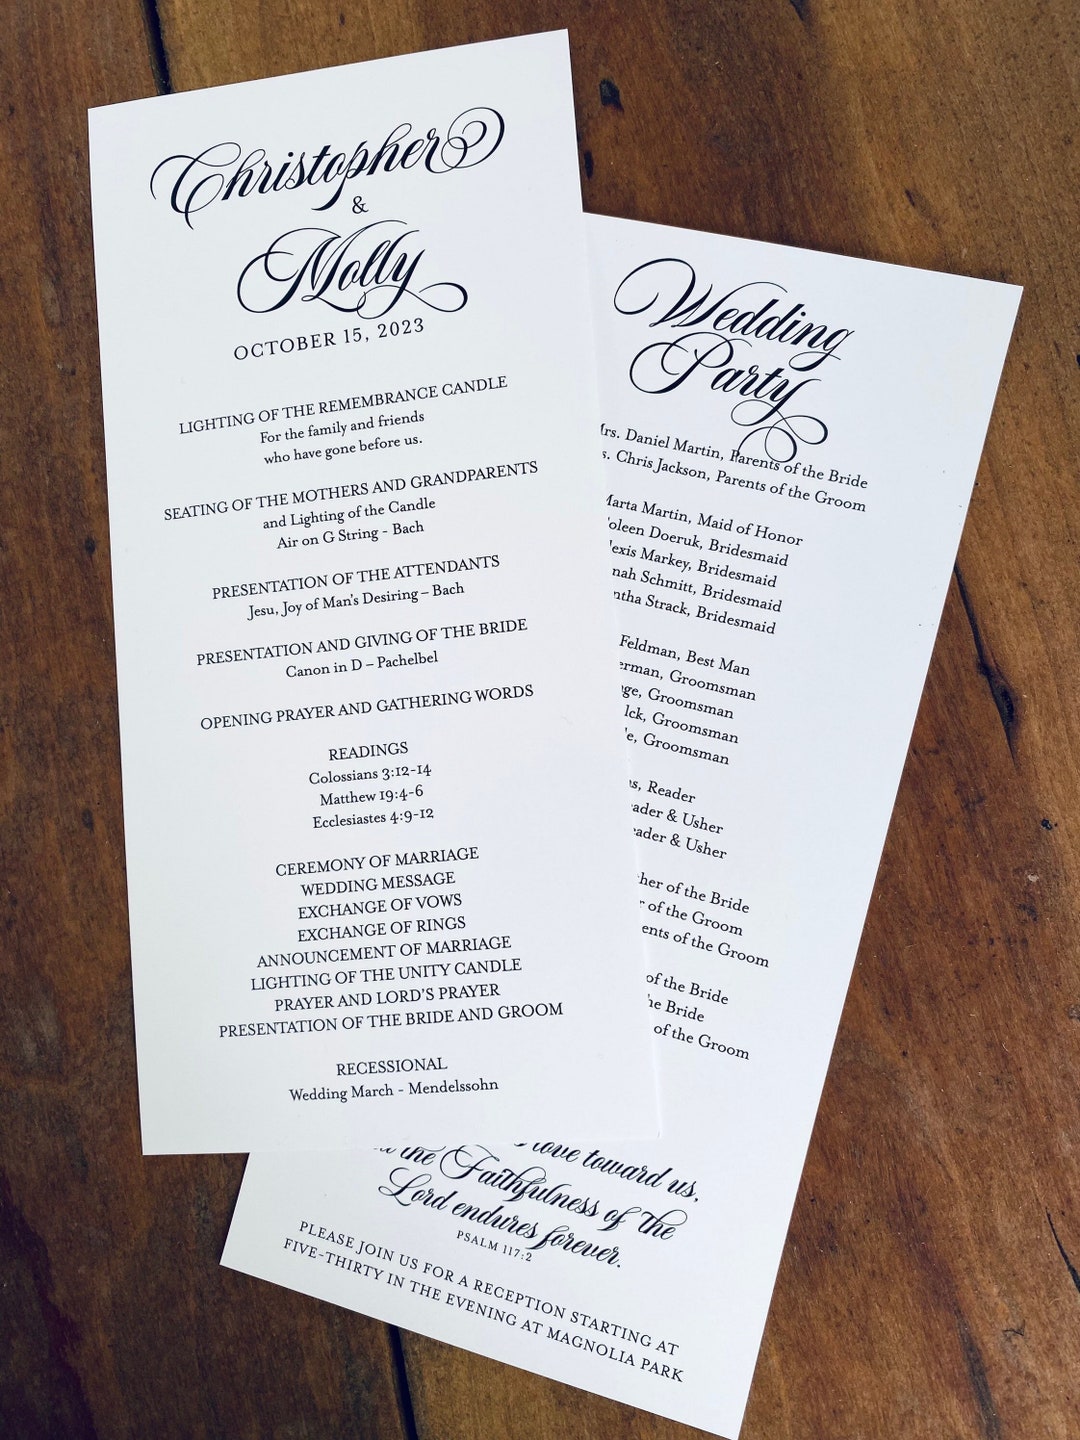 Christopher
&
Molly
OCTOBER 15, 2023
LIGHTING OF THE REMEMBRANCE CANDLE
For the family and friends
who have gone before us.
SEATING OF THE MOTHERS AND GRANDPARENTS
and Lighting of the Candle
Air on G String - Bach
PRESENTATION OF THE ATTENDANTS
Jesu, Joy of Man's Desiring – Bach
PRESENTATION AND GIVING OF THE BRIDE
Canon in D – Pachelbel
OPENING PRAYER AND GATHERING WORDS
READINGS
Colossians 3:12-14
Matthew 19:4-6
Ecclesiastes 4:9-12
CEREMONY OF MARRIAGE
WEDDING MESSAGE
EXCHANGE OF VOWS
EXCHANGE OF RINGS
ANNOUNCEMENT OF MARRIAGE
LIGHTING OF THE UNITY CANDLE
PRAYER AND LORD'S PRAYER
PRESENTATION OF THE BRIDE AND GROOM
RECESSIONAL
Wedding March - Mendelssohn
Wedding
Party
Daniel Martin, Parents of the Bride
Chris Jackson, Parents of the Groom
Martin, Maid of Honor
Doeruk, Bridesmaid
Markey, Bridesmaid
Schmitt, Bridesmaid
Strack, Bridesmaid
Feldman, Best Man
Groomsman
Groomsman
Groomsman
Groomsman
Reader
& Usher
& Usher
of the Bride
of the Groom
of the Groom
of the Bride
Bride
of the Groom
love toward us,
the Faithfulness of the
Lord endures forever.
PSALM 117:2
PLEASE JOIN US FOR A RECEPTION STARTING AT
FIVE-THIRTY IN THE EVENING AT MAGNOLIA PARK